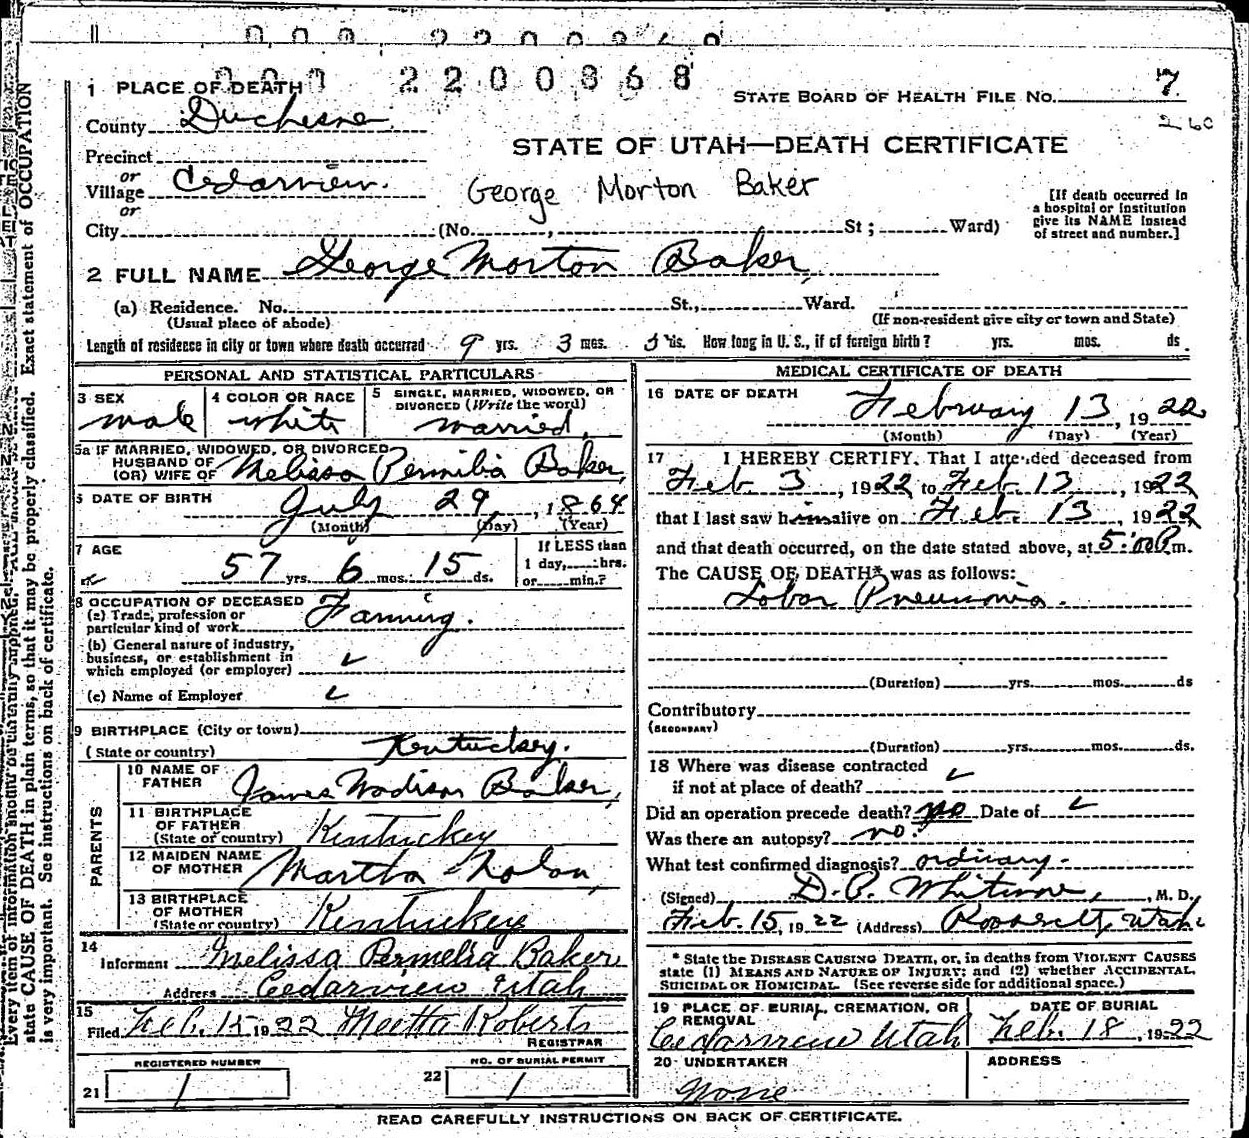 000 2200868
1 PLACE OF DEATH
STATE BOARD OF HEALTH FILE NO. 7
260
County Duchesne
STATE OF UTAH—DEATH CERTIFICATE
Precinct
or
Village Cedarview.
George Morton Baker
or
[If death occurred in
a hospital or institution
give its NAME instead
of street and number.]
City (No. , St ; Ward)
2 FULL NAME George Morton Baker,
(a) Residence. No. St., Ward.
(Usual place of abode) (If non-resident give city or town and State)
Length of residence in city or town where death occurred 9 yrs. 3 mos. 5 ds. How long in U. S., if of foreign birth? yrs. mos. ds.
PERSONAL AND STATISTICAL PARTICULARS
3 SEX
male
4 COLOR OR RACE
white
5 SINGLE, MARRIED, WIDOWED, OR
DIVORCED (Write the word)
married,
5a IF MARRIED, WIDOWED, OR DIVORCED
HUSBAND OF
(OR) WIFE OF Melissa Permilia Baker,
6 DATE OF BIRTH July 29, 1864
(Month) (Day) (Year)
7 AGE
57 yrs. 6 mos. 15 ds.
If LESS than
1 day, hrs.
or min.?
8 OCCUPATION OF DECEASED
(a) Trade, profession or
particular kind of work Farming.
(b) General nature of industry,
business, or establishment in
which employed (or employer) ✓
(c) Name of Employer ✓
9 BIRTHPLACE (City or town)
(State or country) Kentuckey.
PARENTS
10 NAME OF
FATHER James Madison Baker,
11 BIRTHPLACE
OF FATHER
(State or country) Kentuckey
12 MAIDEN NAME
OF MOTHER Martha Nolan,
13 BIRTHPLACE
OF MOTHER
(State or country) Kentuckey
14
Informant Melissa Permelia Baker
Address Cedarview Utah
15
Filed Feb. 15 1922 Meetta Roberts
REGISTRAR
REGISTERED NUMBER
21 1
NO. OF BURIAL PERMIT
22 1
MEDICAL CERTIFICATE OF DEATH
16 DATE OF DEATH
February 13, 1922
(Month) (Day) (Year)
17 I HEREBY CERTIFY, That I attended deceased from
Feb. 3, 1922 to Feb. 13, 1922
that I last saw him alive on Feb. 13, 1922
and that death occurred, on the date stated above, at 5:00 P m.
The CAUSE OF DEATH* was as follows:
Lobar Pneumonia.
(Duration) yrs. mos. ds
Contributory
(SECONDARY)
(Duration) yrs. mos. ds.
18 Where was disease contracted
if not at place of death? ✓
Did an operation precede death? no Date of ✓
Was there an autopsy? no.
What test confirmed diagnosis? ordinary.
(Signed) D. P. Whitmore, , M. D.
Feb. 15, 1922 (Address) Roosevelt, Utah
* State the DISEASE CAUSING DEATH, or, in deaths from VIOLENT CAUSES
state (1) MEANS AND NATURE OF INJURY; and (2) whether ACCIDENTAL,
SUICIDAL OR HOMICIDAL. (See reverse side for additional space.)
19 PLACE OF BURIAL, CREMATION, OR
REMOVAL
Cedarview Utah
DATE OF BURIAL
Feb. 18, 1922
20 UNDERTAKER
None
ADDRESS
READ CAREFULLY INSTRUCTIONS ON BACK OF CERTIFICATE.
state CAUSE OF DEATH in plain terms, so that it may be properly classified. Exact statement of OCCUPATION
is very important. See instructions on back of certificate.